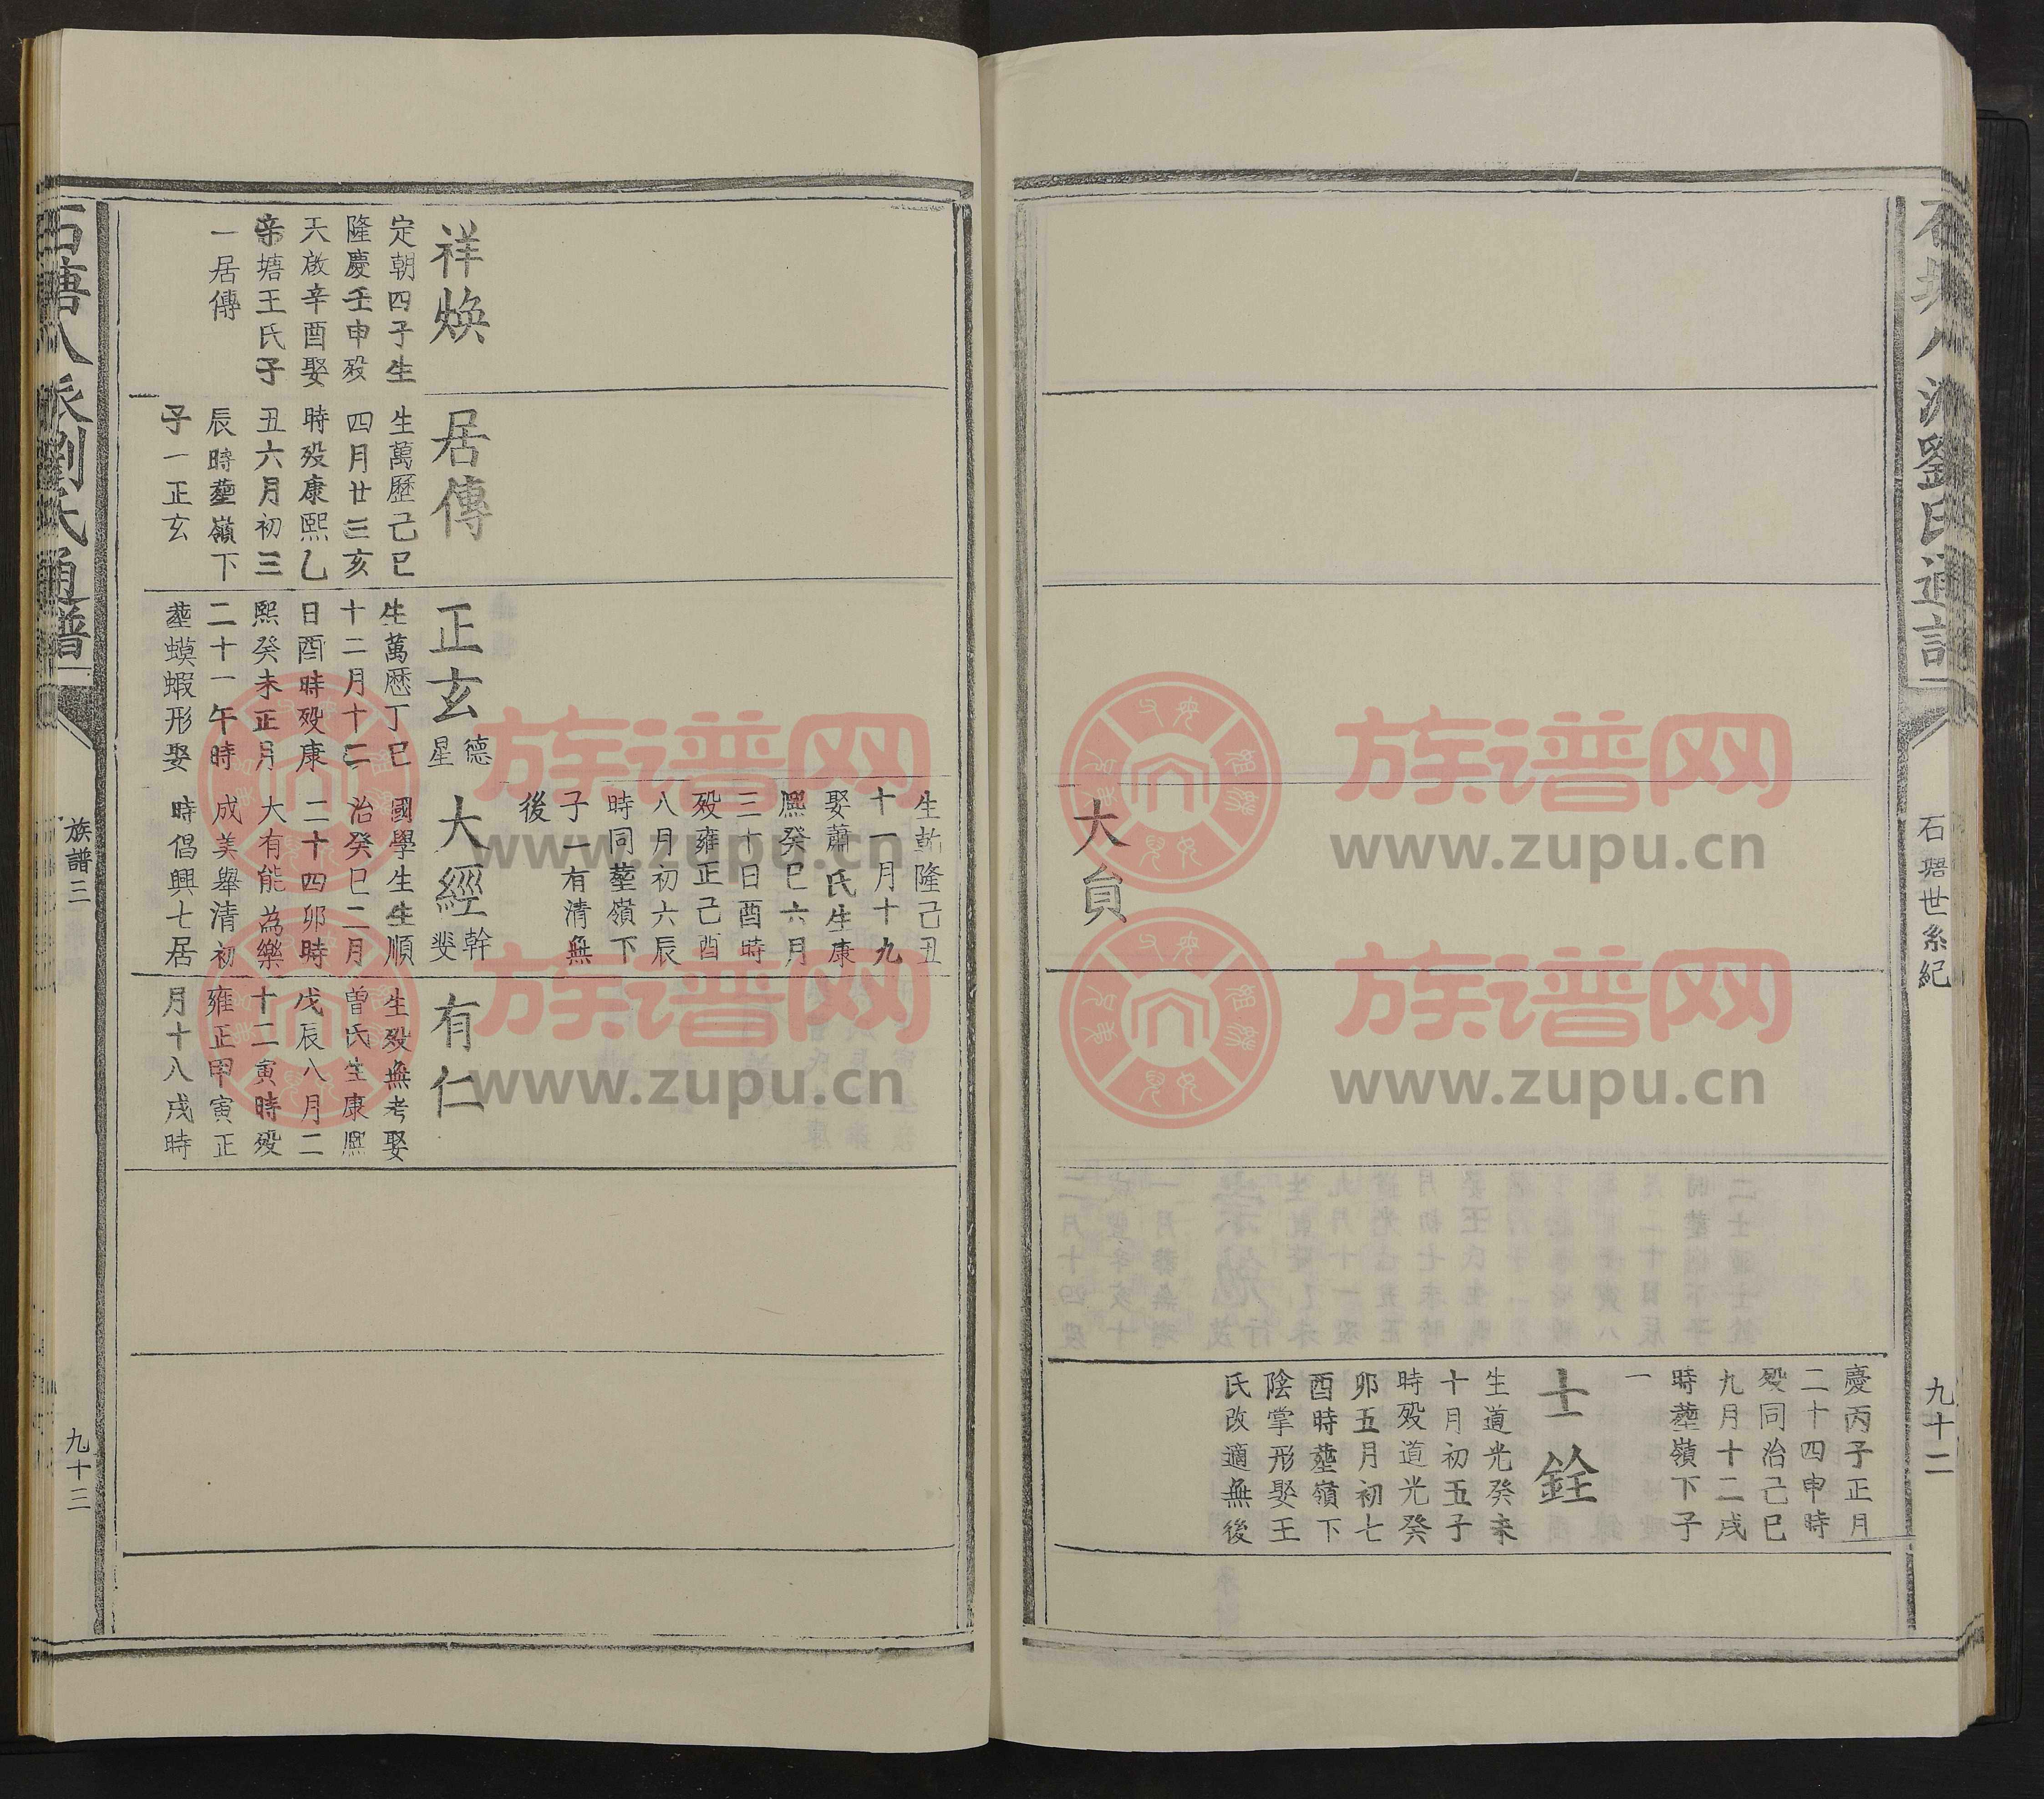 石塘八派劉氏通譜
石塘世系紀
九十二
慶丙子正月
二十四申時
殁同治己巳
九月十二戌
時塟嶺下子
一
士銓
生道光癸未
十月初五子
時殁道光癸
卯五月初七
酉時塟嶺下
陰掌形娶王
氏改適無後
大貟
生乾隆己丑
十一月十九
娶蕭氏生康
熈癸巳六月
三十日酉時
殁雍正己酉
八月初六辰
時同塟嶺下
子一有清無
後
祥煥
定朝四子生
隆慶壬申殁
天啟辛酉娶
栥塘王氏子
一居傳
居傳
生萬歷己巳
四月廿三亥
時殁康熙乙
丑六月初三
辰時塟嶺下
子一正玄
正玄
德
星
生萬歷丁巳
十二月十二
日酉時殁康
熙癸未正月
二十一午時
塟蟆蝦形娶
大經
幹
斐
國學生生順
治癸巳二月
二十四卯時
大有能為樂
成美舉清初
時倡興七居
有仁
生殁無考娶
曾氏生康熈
戊辰八月二
十二寅時殁
雍正甲寅正
月十八戌時
石塘八派劉氏通譜
族譜三
九十三
族谱网
www.zupu.cn
族谱网
www.zupu.cn
族谱网
www.zupu.cn
族谱网
www.zupu.cn